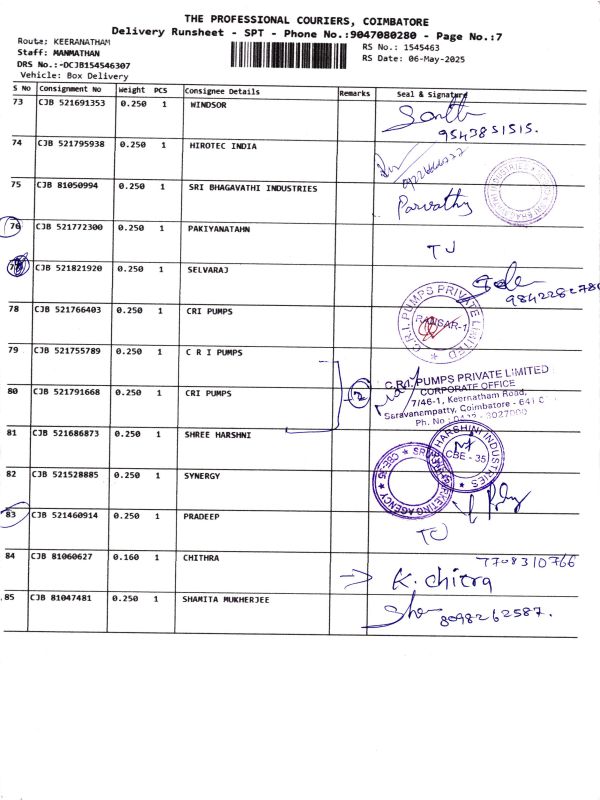 THE PROFESSIONAL COURIERS, COIMBATORE
Delivery Runsheet - SPT - Phone No.:9047080280 - Page No.:7
Route: KEERANATHAM
Staff: MANMATHAN
DRS No.:-DCJB154546307
Vehicle: Box Delivery
RS No.: 1545463
RS Date: 06-May-2025
S No Consignment No Weight PCS Consignee Details Remarks Seal & Signature
73 CJB 521691353 0.250 1 WINDSOR
9543851515.
74 CJB 521795938 0.250 1 HIROTEC INDIA
75 CJB 81050994 0.250 1 SRI BHAGAVATHI INDUSTRIES Parvathy
76 CJB 521772300 0.250 1 PAKIYANATAHN TJ
CJB 521821920 0.250 1 SELVARAJ
78 CJB 521766403 0.250 1 CRI PUMPS C.R.I. PUMPS PRIVATE LIMITED
79 CJB 521755789 0.250 1 C R I PUMPS
80 CJB 521791668 0.250 1 CRI PUMPS 2
C.R.I. PUMPS PRIVATE LIMITED
CORPORATE OFFICE
7/46-1, Keernatham Road,
Saravanempatty, Coimbatore - 641
Ph. No
81 CJB 521686873 0.250 1 SHREE HARSHNI HARSHINI INDUSTRIES CBE - 35
82 CJB 521528885 0.250 1 SYNERGY
83 CJB 521460914 0.250 1 PRADEEP TJ
84 CJB 81060627 0.160 1 CHITHRA 7708310766
K. chitra
85 CJB 81047481 0.250 1 SHAMITA MUKHERJEE 8098262587.